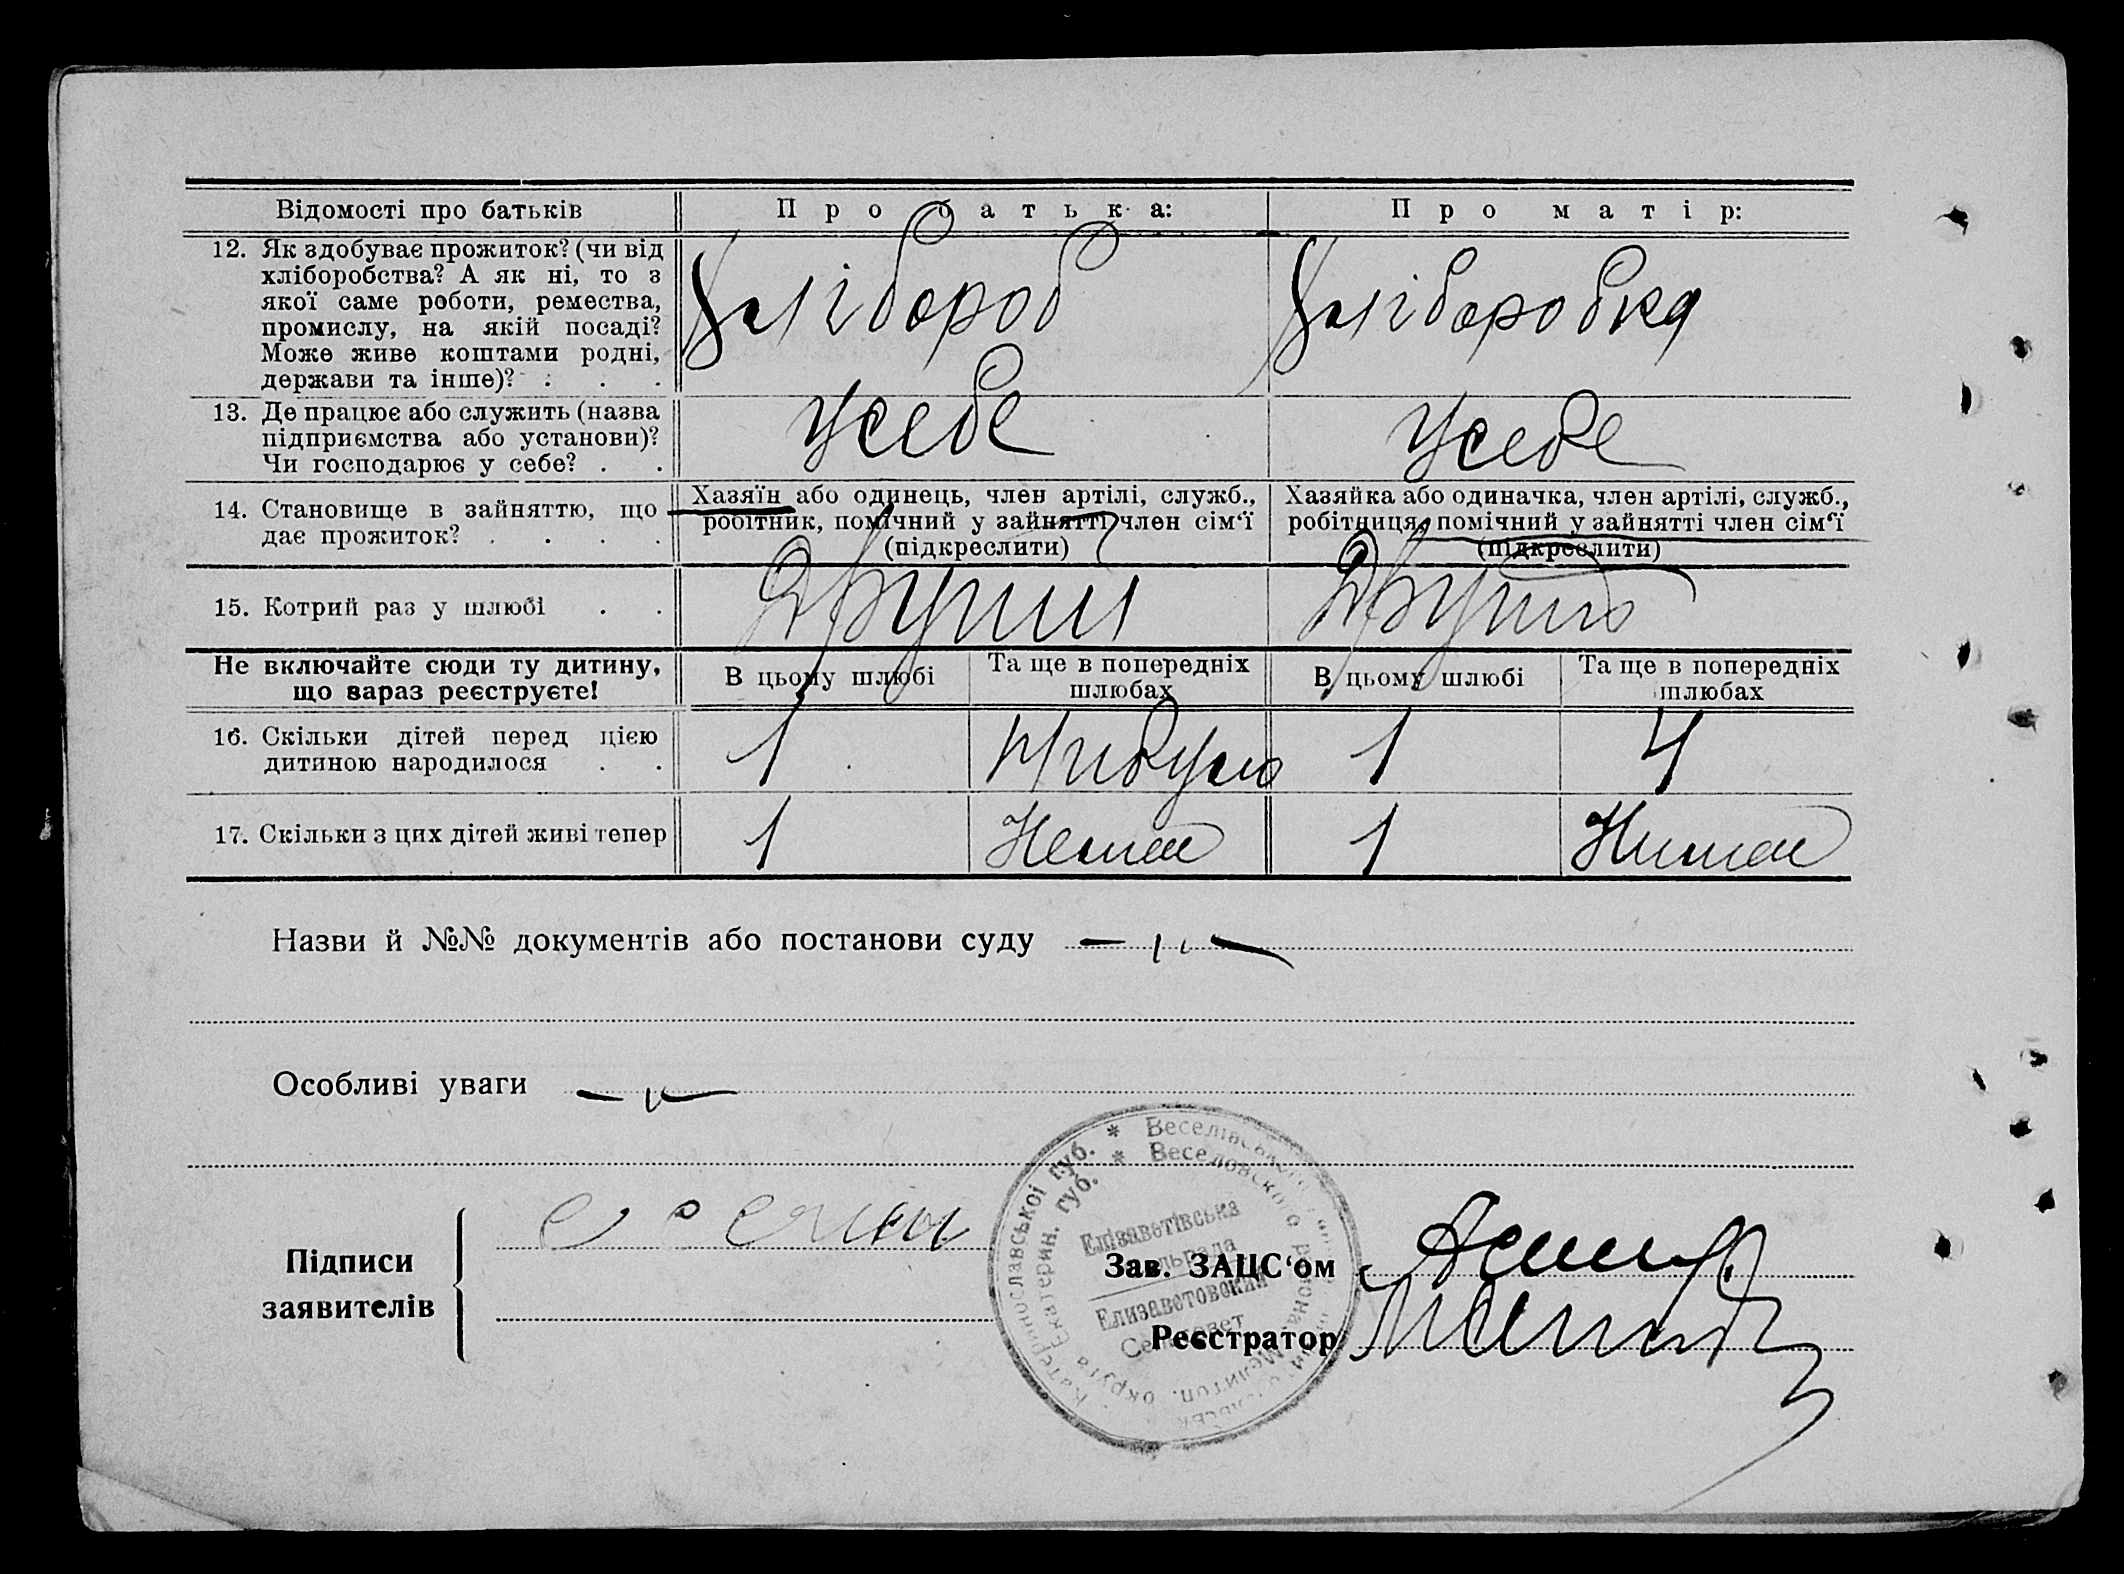 Відомості про батьків
Про батька:
Про матір:
12. Як здобуває прожиток? (чи від
хліборобства? А як ні, то з
якої саме роботи, ремества,
промислу, на якій посаді?
Може живе коштами родні,
держави та інше)? . . .
Хлібороб
Хліборобка
13. Де працює або служить (назва
підприємства або установи)?
Чи господарює у себе? . .
У себе
У себе
14. Становище в зайняттю, що
дає прожиток? . . . .
Хазяїн або одинець, член артілі, служб.,
робітник, помічний у зайнятті член сім‘ї
(підкреслити)
Хазяйка або одиначка, член артілі, служб.,
робітниця, помічний у зайнятті член сім‘ї
(підкреслити)
15. Котрий раз у шлюбі . .
Другий
Не включайте сюди ту дитину,
що зараз реєструєте!
В цьому шлюбі
Та ще в попередніх
шлюбах
В цьому шлюбі
Та ще в попередніх
шлюбах
16. Скільки дітей перед цією
дитиною народилося . .
1
1
4
17. Скільки з цих дітей живі тепер
1
Немає
1
Нимає
Назви й №№ документів або постанови суду — „ —
Особливі уваги — „ —
Підписи
заявителів
Зав. ЗАЦС‘ом
Реєстратор
Катеринославської губ. * Веселівський
Екатерин. губ. * Веселовского района Мелитоп. округа
Елізаветівська
сільрада
Елизаветовский
Сельсовет